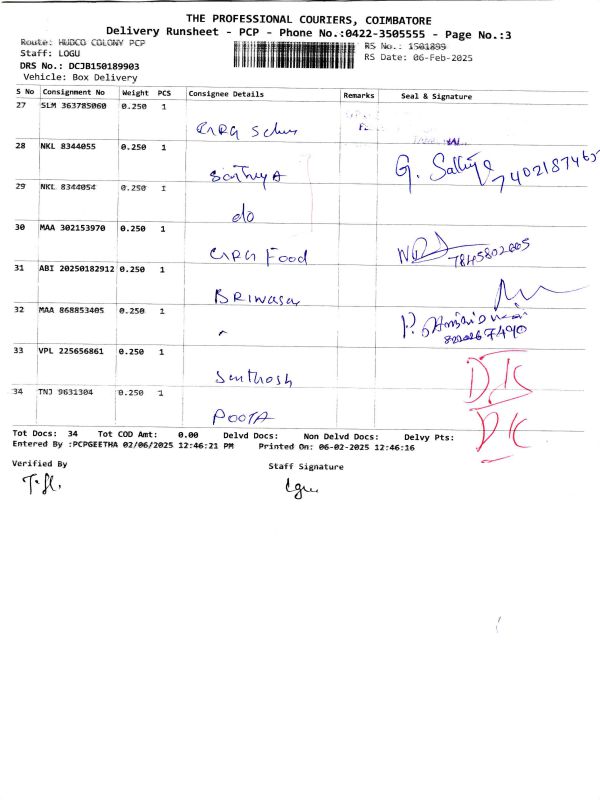 THE PROFESSIONAL COURIERS, COIMBATORE
Delivery Runsheet - PCP - Phone No.:0422-3505555 - Page No.:3
Route: HUDCO COLONY PCP
RS No.: 1501899
Staff: LOGU
RS Date: 06-Feb-2025
DRS No.: DCJB150189903
Vehicle: Box Delivery
S No Consignment No Weight PCS Consignee Details Remarks Seal & Signature
27 SLM 363785060 0.250 1
28 NKL 8344055 0.250 1
Sathiya G. 7402187465
29 NKL 8344054 0.250 1
do
30 MAA 302153970 0.250 1
Food 7845802605
31 ABI 20250182912 0.250 1
32 MAA 868853405 0.250 1
33 VPL 225656861 0.250 1
Santhosh D/C
34 TNJ 9631304 0.250 1
POOJA D/C
Tot Docs: 34 Tot COD Amt: 0.00 Delvd Docs: Non Delvd Docs: Delvy Pts:
Entered By :PCPGEETHA 02/06/2025 12:46:21 PM Printed On: 06-02-2025 12:46:16
Verified By
Staff Signature